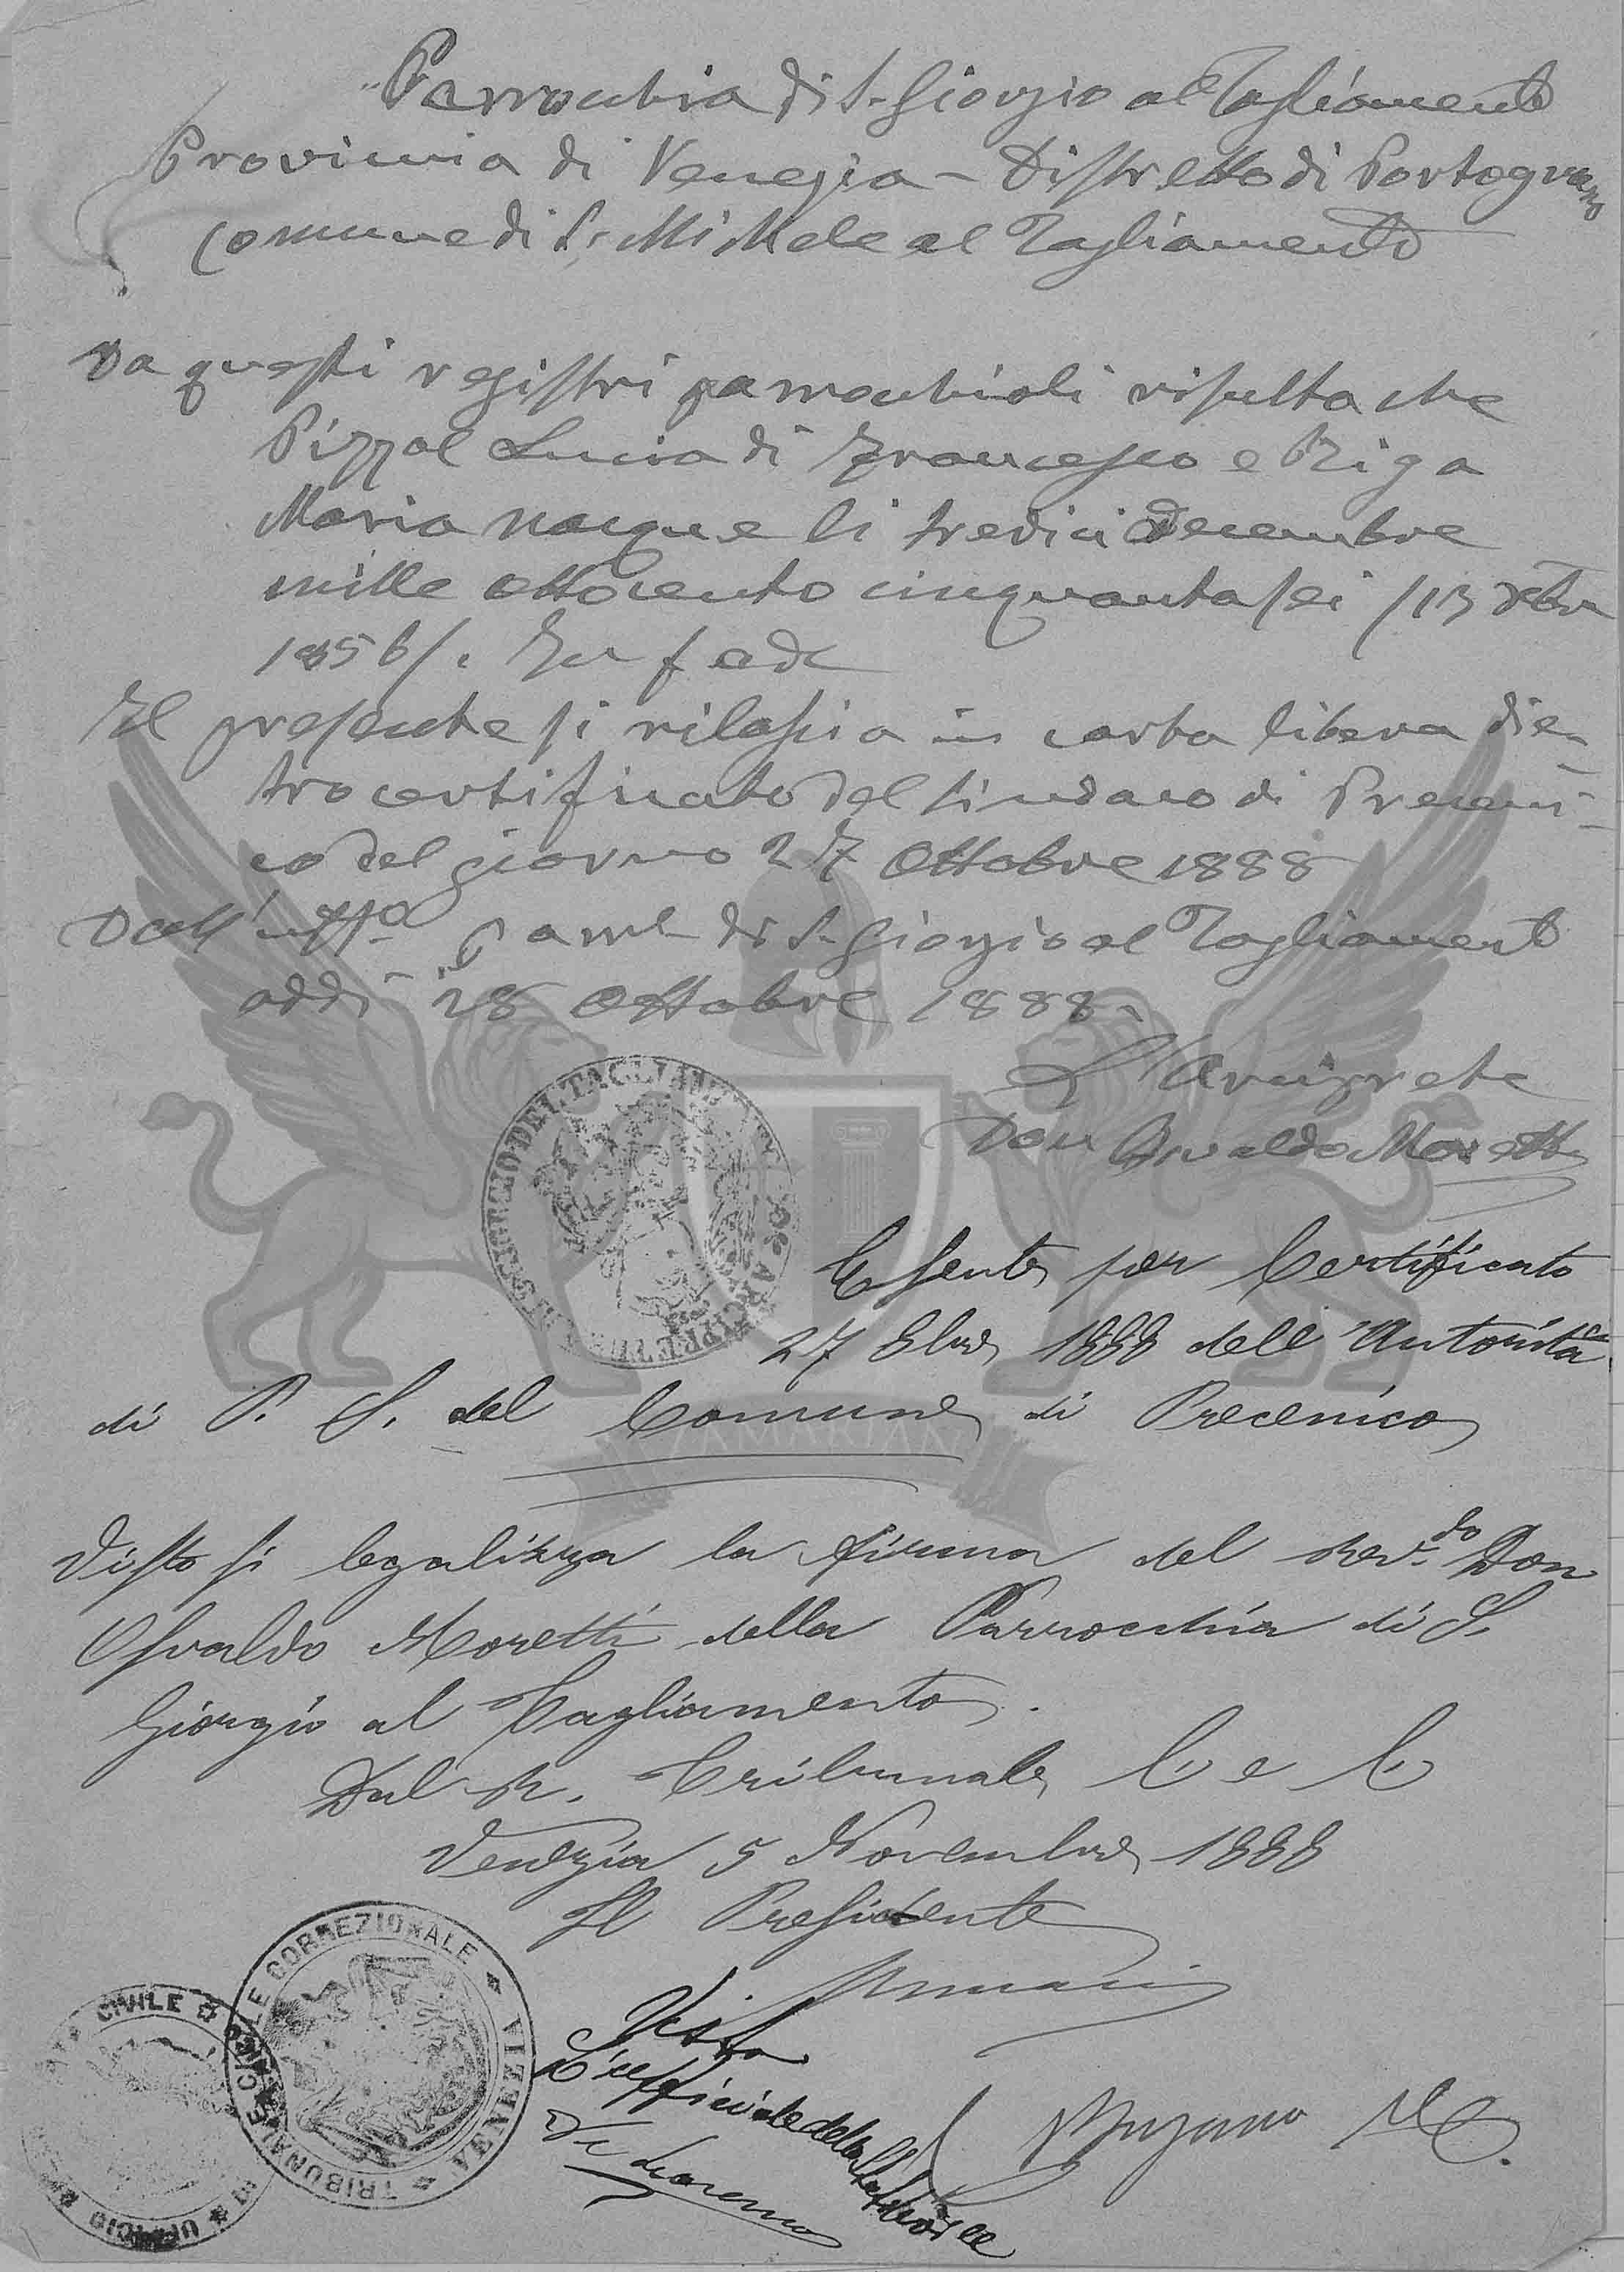 Parrochia di S. Giorgio al Tagliamento
Provincia di Venezia - Distretto di Portogruaro
Comune di S. Michele al Tagliamento
Da questi registri parrochiali risulta che
Pizzal Lucia di Francesco e Biga
Maria nacque li tredici Decembre
mille ottocento cinquantasei /13 Xbre
1856/. In fede
Il presente si rilascia in carta libera die-
tro certificato del Sindaco di Preceni-
co del giorno 27 Ottobre 1888
Dall' Uff.o Parr. di S. Giorgio al Tagliamento
addì 28 Ottobre 1888.
L'Arciprete
Don Osvaldo Moretti
Esente per Certificato
27 8bre 1888 dell'Autorità
di P. S. del Comune di Precenico
Visto si legalizza la firma del Rev.do Don
Osvaldo Moretti della Parrocchia di S.
Giorgio al Tagliamento.
Dal R. Tribunale C e C
Venezia 5 Novembre 1888
Il Presidente
Visto
L'ufficiale dello Stato Civile
TRIBUNALE CIVILE CORREZIONALE VENEZIA
UFFICIO CIVILE